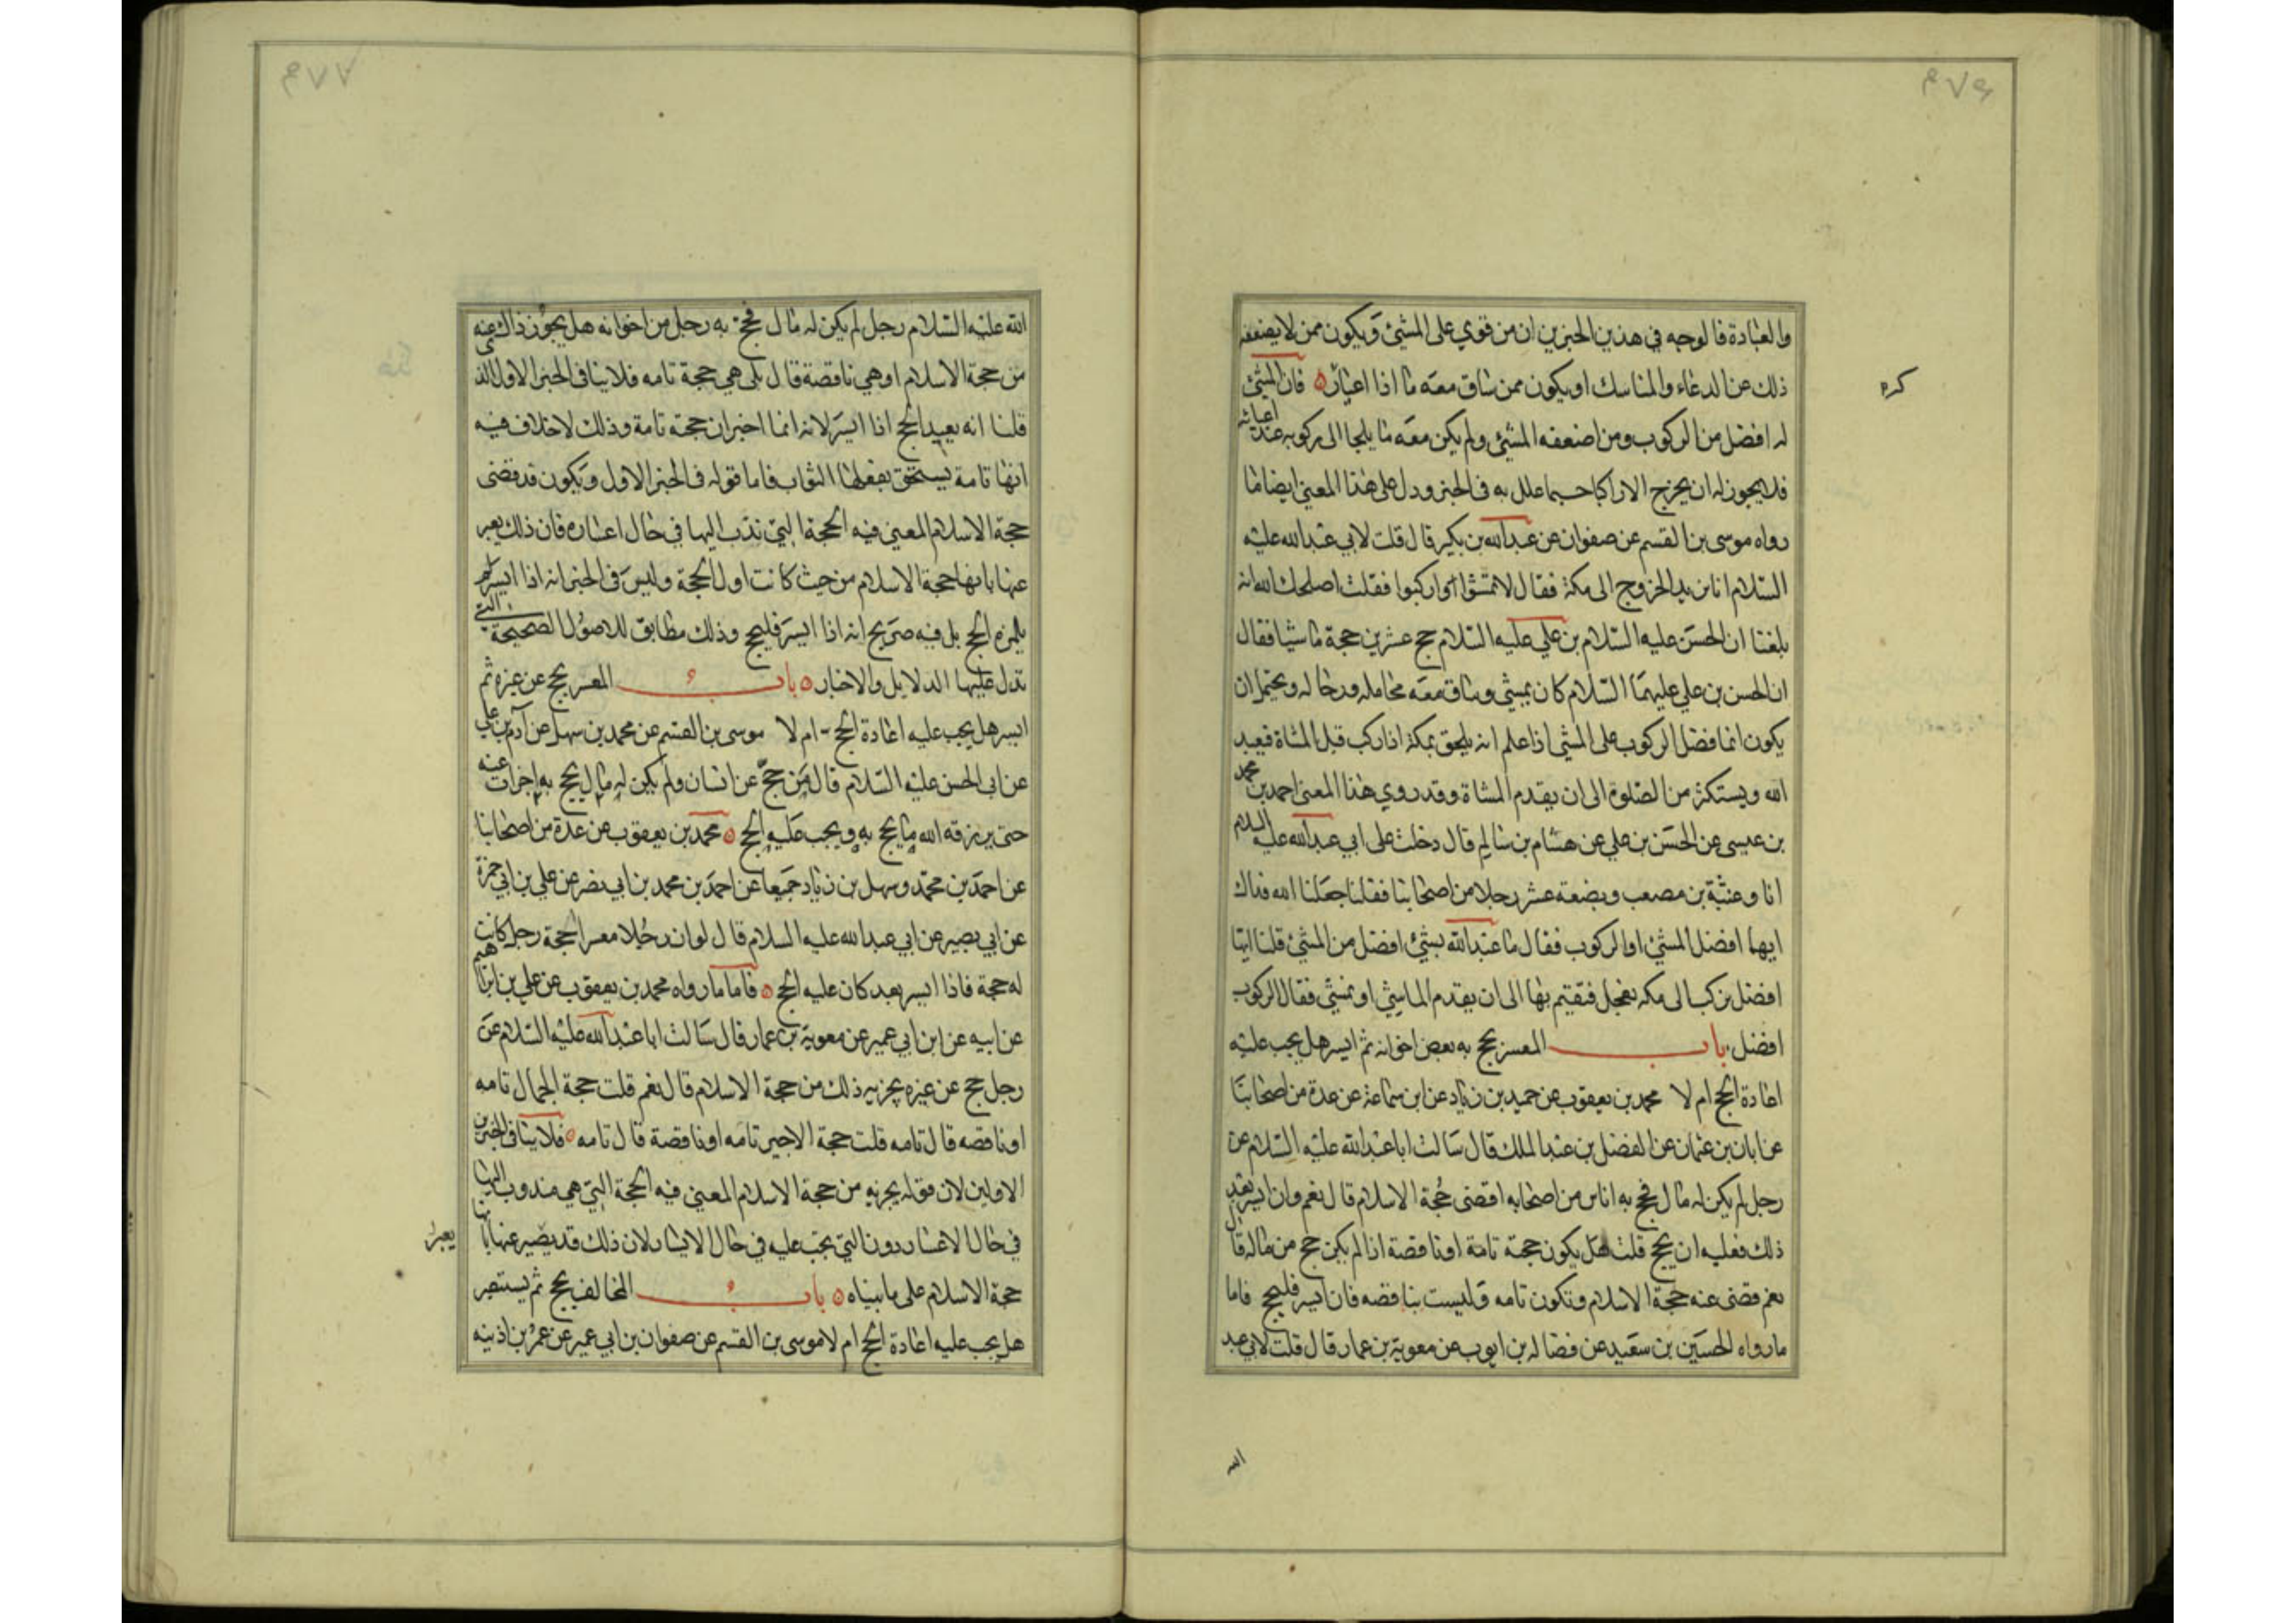 والعبادة فالوجه في هذين الخبرين ان من قوي على المشي ويكون ممن لا يضعفه
ذلك عن الدعاء والمناسك او يكون ممن ساق معه ما اذا اعيا فان المشي
كره
له افضل من الركوب ومن اضعفه المشي ولم يكن معه ما يلجا الى ركوبه عند اعيائه
فلا يجوز له ان يخرج الا راكبا حسبما علل به في الخبر ودل على هذا المعنى ايضا ما
رواه موسى بن القسم عن صفوان عن عبدالله بن بكير قال قلت لابي عبدالله عليه
السلام انا نريد الخروج الى مكة فقال لا تمشوا واركبوا فقلت اصلحك الله انه
بلغنا ان الحسن عليه السلام بن علي عليه السلام حج عشرين حجة ماشيا فقال
ان الحسن بن علي عليهما السلام كان يمشي وساق معه محامله ورحاله ويحتمل ان
يكون انما فضل الركوب على المشي اذا علم انه يلحق بمكة اذا ركب قبل المشاة فيعبد
الله ويستكثر من الصلوة الى ان يقدم المشاة وقد روي هذا المعنى احمد بن محمد
بن عيسى عن الحسن بن علي عن هشام بن سالم قال دخلت على ابي عبدالله عليه السلام
انا وعنبة بن مصعب وبضعة عشر رجلا من اصحابنا فقلنا جعلنا الله فداك
ايهما افضل المشي او الركوب فقال ما عبدالله بشئ افضل من المشي قلنا ايما
افضل نركب الى مكه نعجل فنقيم بها الى ان يقدم الماشي او نمشي فقال الركوب
افضل باب المعسر يحج به بعض اخوانه ثم ايسر هل يجب عليه
اعادة الحج ام لا محمد بن يعقوب عن حميد بن زياد عن ابن سماعة عن عدة من اصحابنا
عن ابان بن عثمان عن الفضل بن عبدالملك قال سالت اباعبدالله عليه السلام عن
رجل لم يكن له مال فحج به اناس من اصحابه اقضى حجة الاسلام قال نعم وان ايسر بعد
ذلك فعليه ان يحج قلت هل يكون حجته تامة او ناقصة اذا لم يكن حج من ماله قال
نعم قضى عنه حجة الاسلام وتكون تامه وليست بناقصه فان ايسر فليحج فاما
ما رواه الحسين بن سعيد عن فضاله بن ايوب عن معوية بن عمار قال قلت لابي عبد
الله
الله عليه السلام رجل لم يكن له مال فحج به رجل من اخوانه هل يجوز ذلك عنه
من حجة الاسلام او هي ناقصة قال بلى هي حجة تامه فلا ينافى الخبر الاول الذى
قلنا انه يعيد الحج اذا ايسر لانه انما اخبر ان حجته تامة وذلك لا خلاف فيه
انها تامة يستحق بفعلها الثواب فاما قوله فى الخبر الاول ويكون قد قضى
حجة الاسلام المعنى فيه الحجة التي ندب اليها في حال اعساره فان ذلك يعبر
عنها بانها حجة الاسلام من حيث كانت اول الحجة وليس فى الخبر انه اذا ايسر لم
يلزمه الحج بل فيه صريح انه اذا ايسر فليحج وذلك مطابق للاصول الصحيحة التي
تدل عليها الدلايل والاخبار باب المعسر يحج عن غيره ثم
ايسر هل يجب عليه اعادة الحج ام لا موسى بن القسم عن محمد بن سهل عن آدم بن علي
عن ابى الحسن عليه السلام قال من حج عن انسان ولم يكن له مال يحج به اجزات عنه
حتى يرزقه الله ما يحج به ويجب عليه الحج محمد بن يعقوب عن عدة من اصحابنا
عن احمد بن محمد وسهل بن زياد جميعا عن احمد بن محمد بن ابي نصر عن علي بن ابي حمزة
عن ابي بصير عن ابي عبدالله عليه السلام قال لو ان رجلا معسرا احجة رجل كانت
له حجة فاذا ايسر بعد كان عليه الحج فاما ما رواه محمد بن يعقوب عن علي بن ابراهيم
عن ابيه عن ابن ابي عمير عن معوية بن عمار قال سالت اباعبدالله عليه السلام عن
رجل حج عن غيره يجزيه ذلك من حجة الاسلام قال نعم قلت حجة الجمال تامه
او ناقصه قال تامه قلت حجة الاجير تامه او ناقصة قال تامه فلا ينافى الخبرين
الاولين لان قوله يجزيه من حجة الاسلام المعنى فيه الحجة التي هي مندوب اليها
في حال الاعسار دون التي يجب عليه في حال الايسار لان ذلك قد يصير عنها بانها
يعبر
حجة الاسلام على ما بيناه باب المخالف يحج ثم يستبصر
هل يجب عليه اعادة الحج ام لا موسى بن القسم عن صفوان بن ابي عمير عن عمر بن اذينه